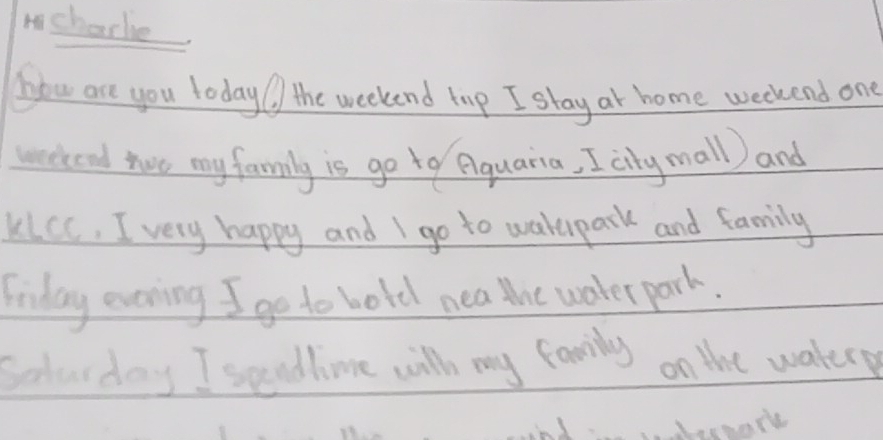 Hi Charlie
how are you today? the weekend trip I stay at home weekend one
weekend two my family is go to (Aquaria, I city mall) and
KLCC. I very happy and I go to waterpark and family
Friday evening I go to hotel nea the water park.
Saturday I spend time with my family on the waterp
in waterpark